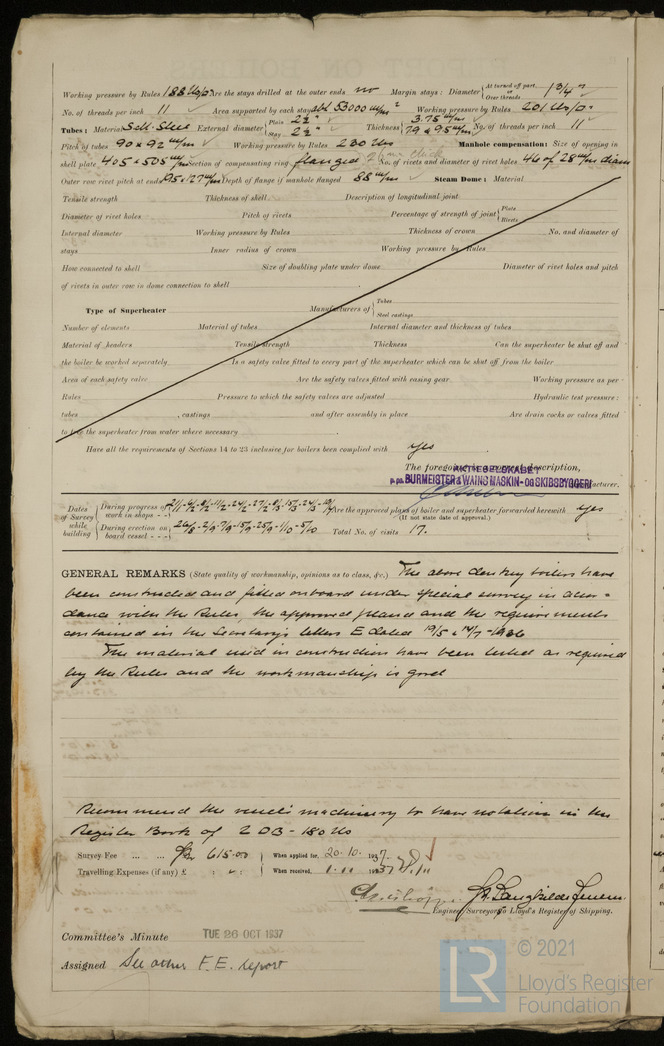 Working pressure by Rules 188 lb/□" Are the stays drilled at the outer ends no Margin stays: Diameter { At turned off part, or Over threads 1 3/4"
No. of threads per inch 11 Area supported by each stay 53000 m/m² Working pressure by Rules 201 lb/□"
Tubes: Material S.D. Steel External diameter { Plain 2½" Stay 2½" Thickness { 3.75 m/m 7.9 & 9.5 m/m No. of threads per inch 11
Pitch of tubes 90 x 92 m/m Working pressure by Rules 230 lbs Manhole compensation: Size of opening in
shell plate 405 x 505 m/m Section of compensating ring flanged No. of rivets and diameter of rivet holes 46 of 28 m/m diam
Outer row rivet pitch at ends 95 & 127 m/m Depth of flange if manhole flanged 88 m/m Steam Dome: Material
Tensile strength Thickness of shell Description of longitudinal joint
Diameter of rivet holes Pitch of rivets Percentage of strength of joint { Plate Rivets
Internal diameter Working pressure by Rules Thickness of crown No. and diameter of
stays Inner radius of crown Working pressure by Rules
How connected to shell Size of doubling plate under dome Diameter of rivet holes and pitch
of rivets in outer row in dome connection to shell
Type of Superheater Manufacturers of { Tubes Steel castings
Number of elements Material of tubes Internal diameter and thickness of tubes
Material of headers Tensile strength Thickness Can the superheater be shut off and
the boiler be worked separately Is a safety valve fitted to every part of the superheater which can be shut off from the boiler
Area of each safety valve Are the safety valves fitted with easing gear Working pressure as per
Rules Pressure to which the safety valves are adjusted Hydraulic test pressure:
tubes , castings and after assembly in place Are drain cocks or valves fitted
to free the superheater from water where necessary
Have all the requirements of Sections 14 to 23 inclusive for boilers been complied with yes
The foregoing is a correct description,
AKTIESELSKABET
p.pa. BURMEISTER & WAINS MASKIN- OG SKIBSBYGGERI Manufacturer.
Dates of Survey while building { During progress of work in shops - - Are the approved plans of boiler and superheater forwarded herewith yes
(If not state date of approval.)
During erection on board vessel - - - 26/8 - 2/9 - 7/9 - 15/9 - 25/9 - 1/10 - 5/10 Total No. of visits 17.
GENERAL REMARKS (State quality of workmanship, opinions as to class, &c.) The above donkey boilers have
been constructed and fitted onboard under special survey in accor-
dance with the Rules, the approved plans and the requirements
contained in the Secretary's letters E dated 19/5 & 14/7 - 1936
The material used in construction have been tested as required
by the Rules and the workmanship is good
Recommend the vessel's machinery to have notation in the
Register Book of 2 DB - 180 lbs
Survey Fee ... ... Kr 615.00 When applied for, 20.10. 1937.
Travelling Expenses (if any) £ : : When received, 1.11 1937
Engineer Surveyor to Lloyd's Register of Shipping.
Committee's Minute TUE 26 OCT 1937
Assigned See other F.E. report
© 2021
LR Lloyd's Register
Foundation